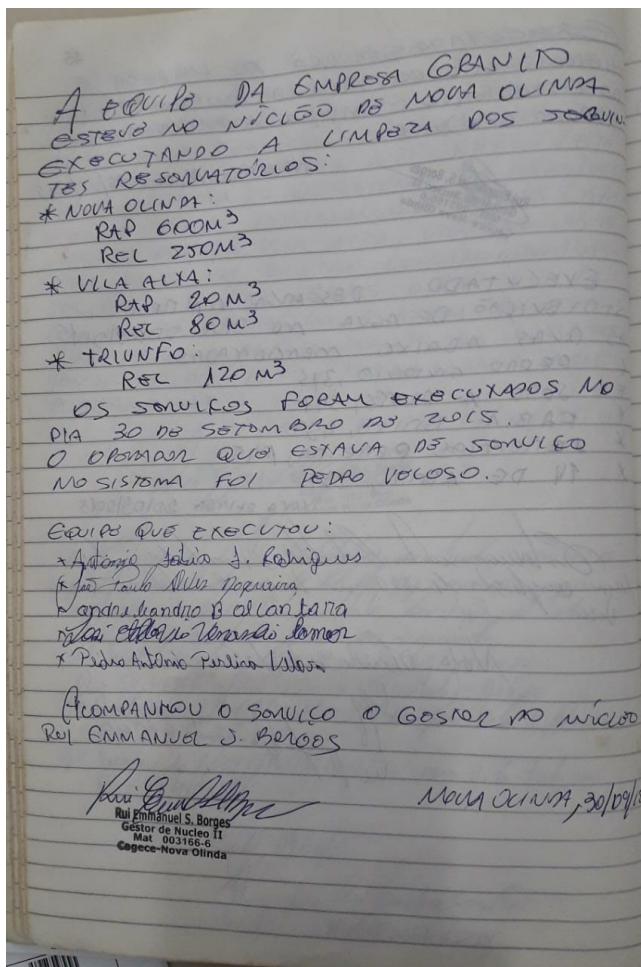 A EQUIPE DA EMPRESA GRANITO
ESTEVE NO NÚCLEO DE NOVA OLINDA
EXECUTANDO A LIMPEZA DOS SEGUIN-
TES RESERVATÓRIOS:
* NOVA OLINDA:
RAP 600M³
REL 250M³
* VILA ALTA:
RAP 20M³
REL 80M³
* TRIUNFO:
REL 120M³
OS SERVIÇOS FORAM EXECUTADOS NO
DIA 30 DE SETEMBRO DE 2015.
O OPERADOR QUE ESTAVA DE SERVIÇO
NO SISTEMA FOI PEDRO VELOSO.
EQUIPE QUE EXECUTOU:
* Antônio J. Rodrigues
* João Paulo Alves Nogueira
B alcantara
José
* Pedro Antônio Pereira Veloso
ACOMPANHOU O SERVIÇO O GESTOR DO NÚCLEO
RUI EMMANUEL S. BORGES
Rui
NOVA OLINDA, 30/09/15
Rui Emmanuel S. Borges
Gestor de Nucleo II
Mat 003166-6
Cagece-Nova Olinda